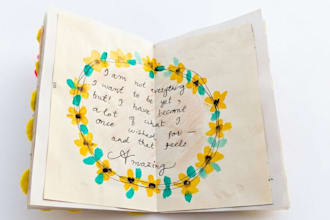 I am not everything
I want to be yet,
but! I have become
a lot of what I
once wished for —
and that feels
Amazing